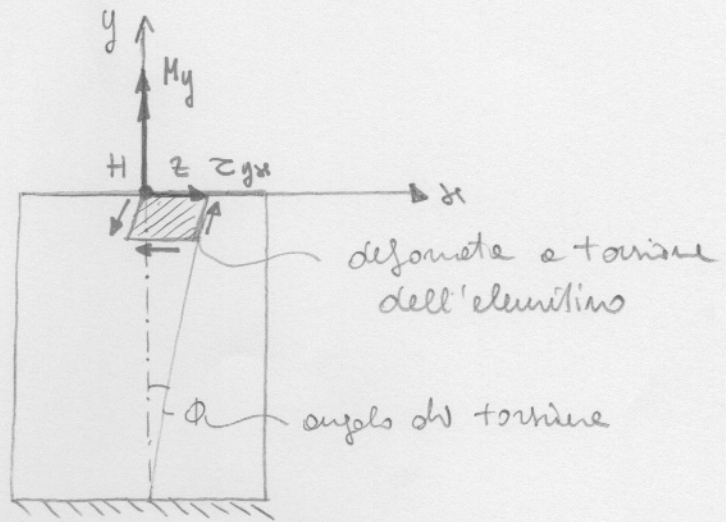 y
My
H z τyx
x
deformata a torsione
dell'elemitino
Φ angolo di torsione